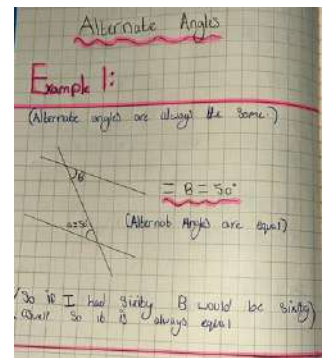 Alternate Angles
Example 1:
(Alternate angles are always the same.)
B
= B = 50°
a=50°
(Alternate Angles are equal)
(So if I had sixty B would be sixty)
aswell so it is always equal